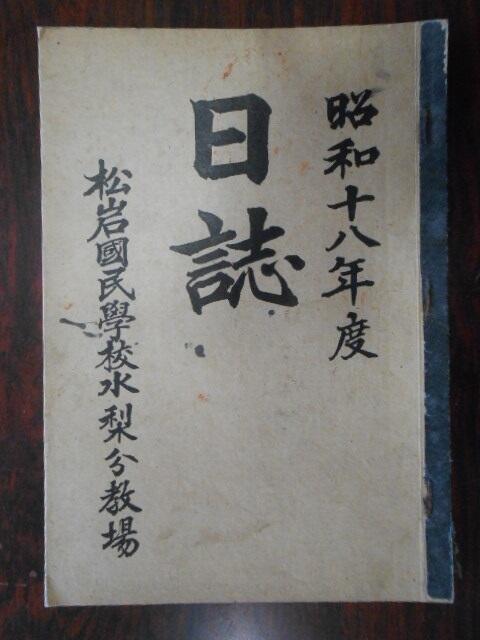 昭和十八年度
日誌
松岩國民學校水梨分教場